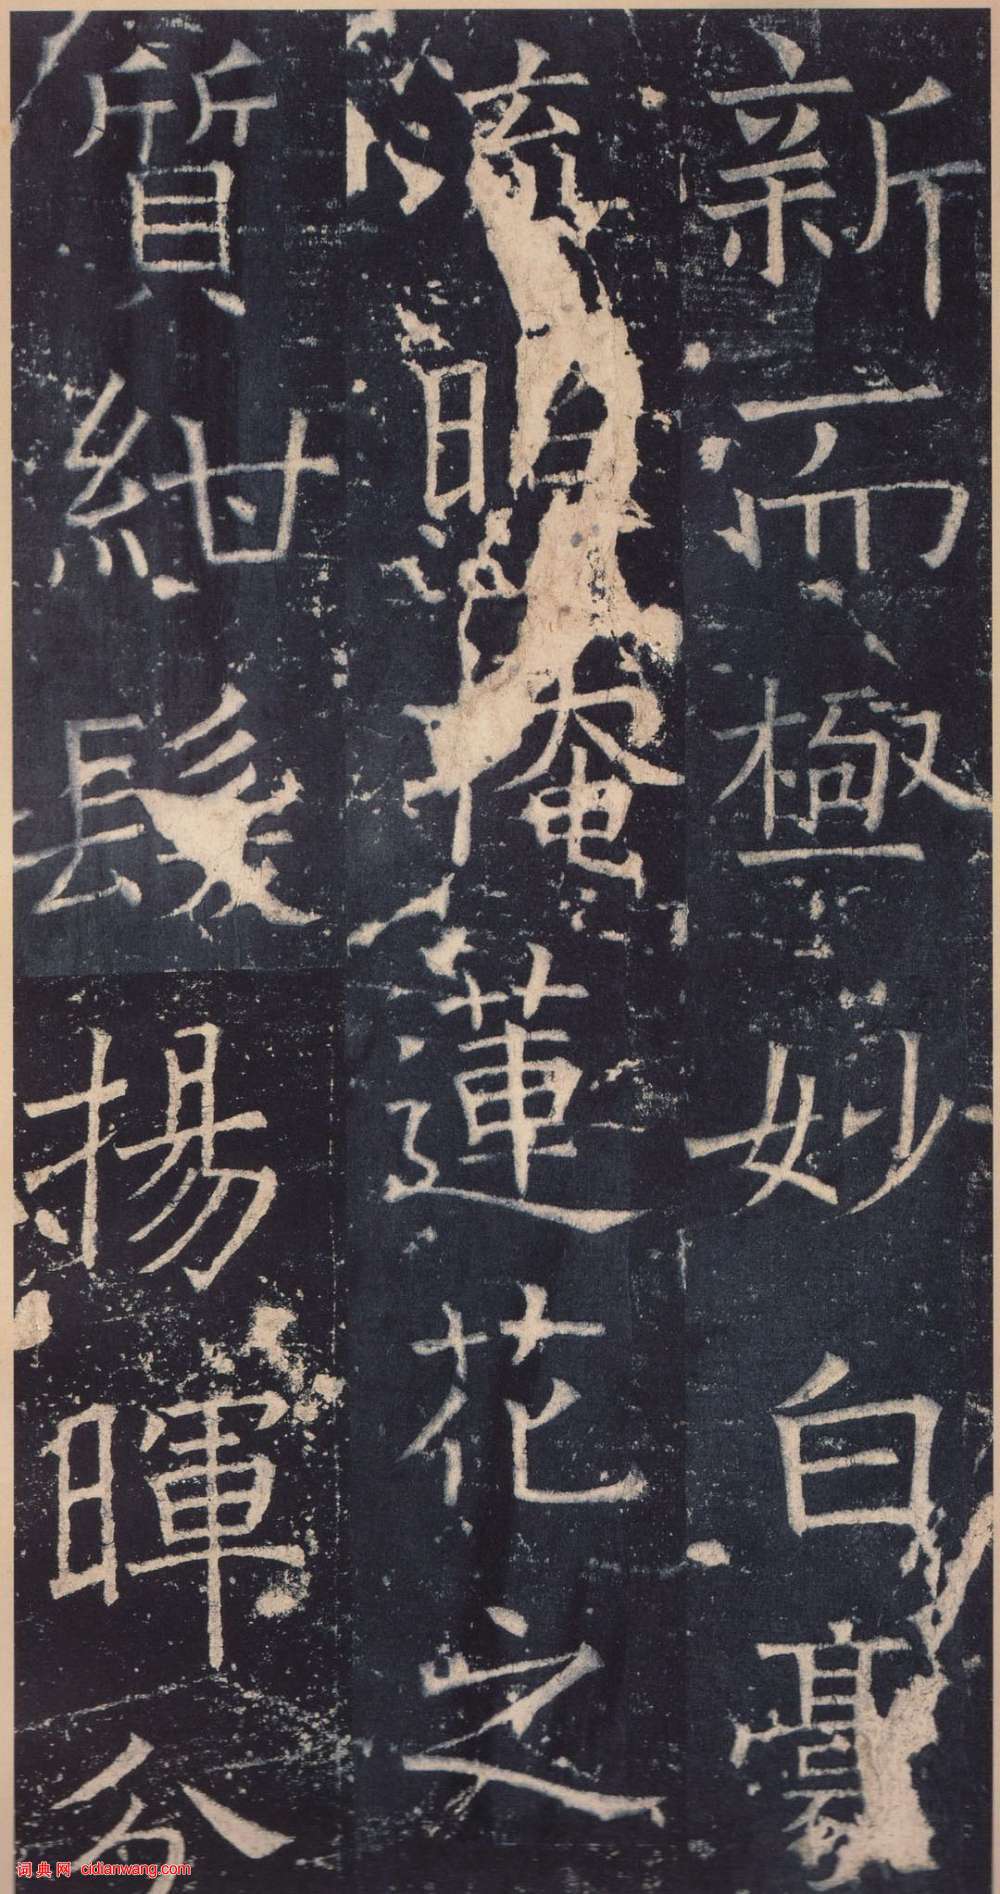 新而極妙白毫
流照掩蓮花之
質紺髮揚暉分
词典网 cidianwang.com